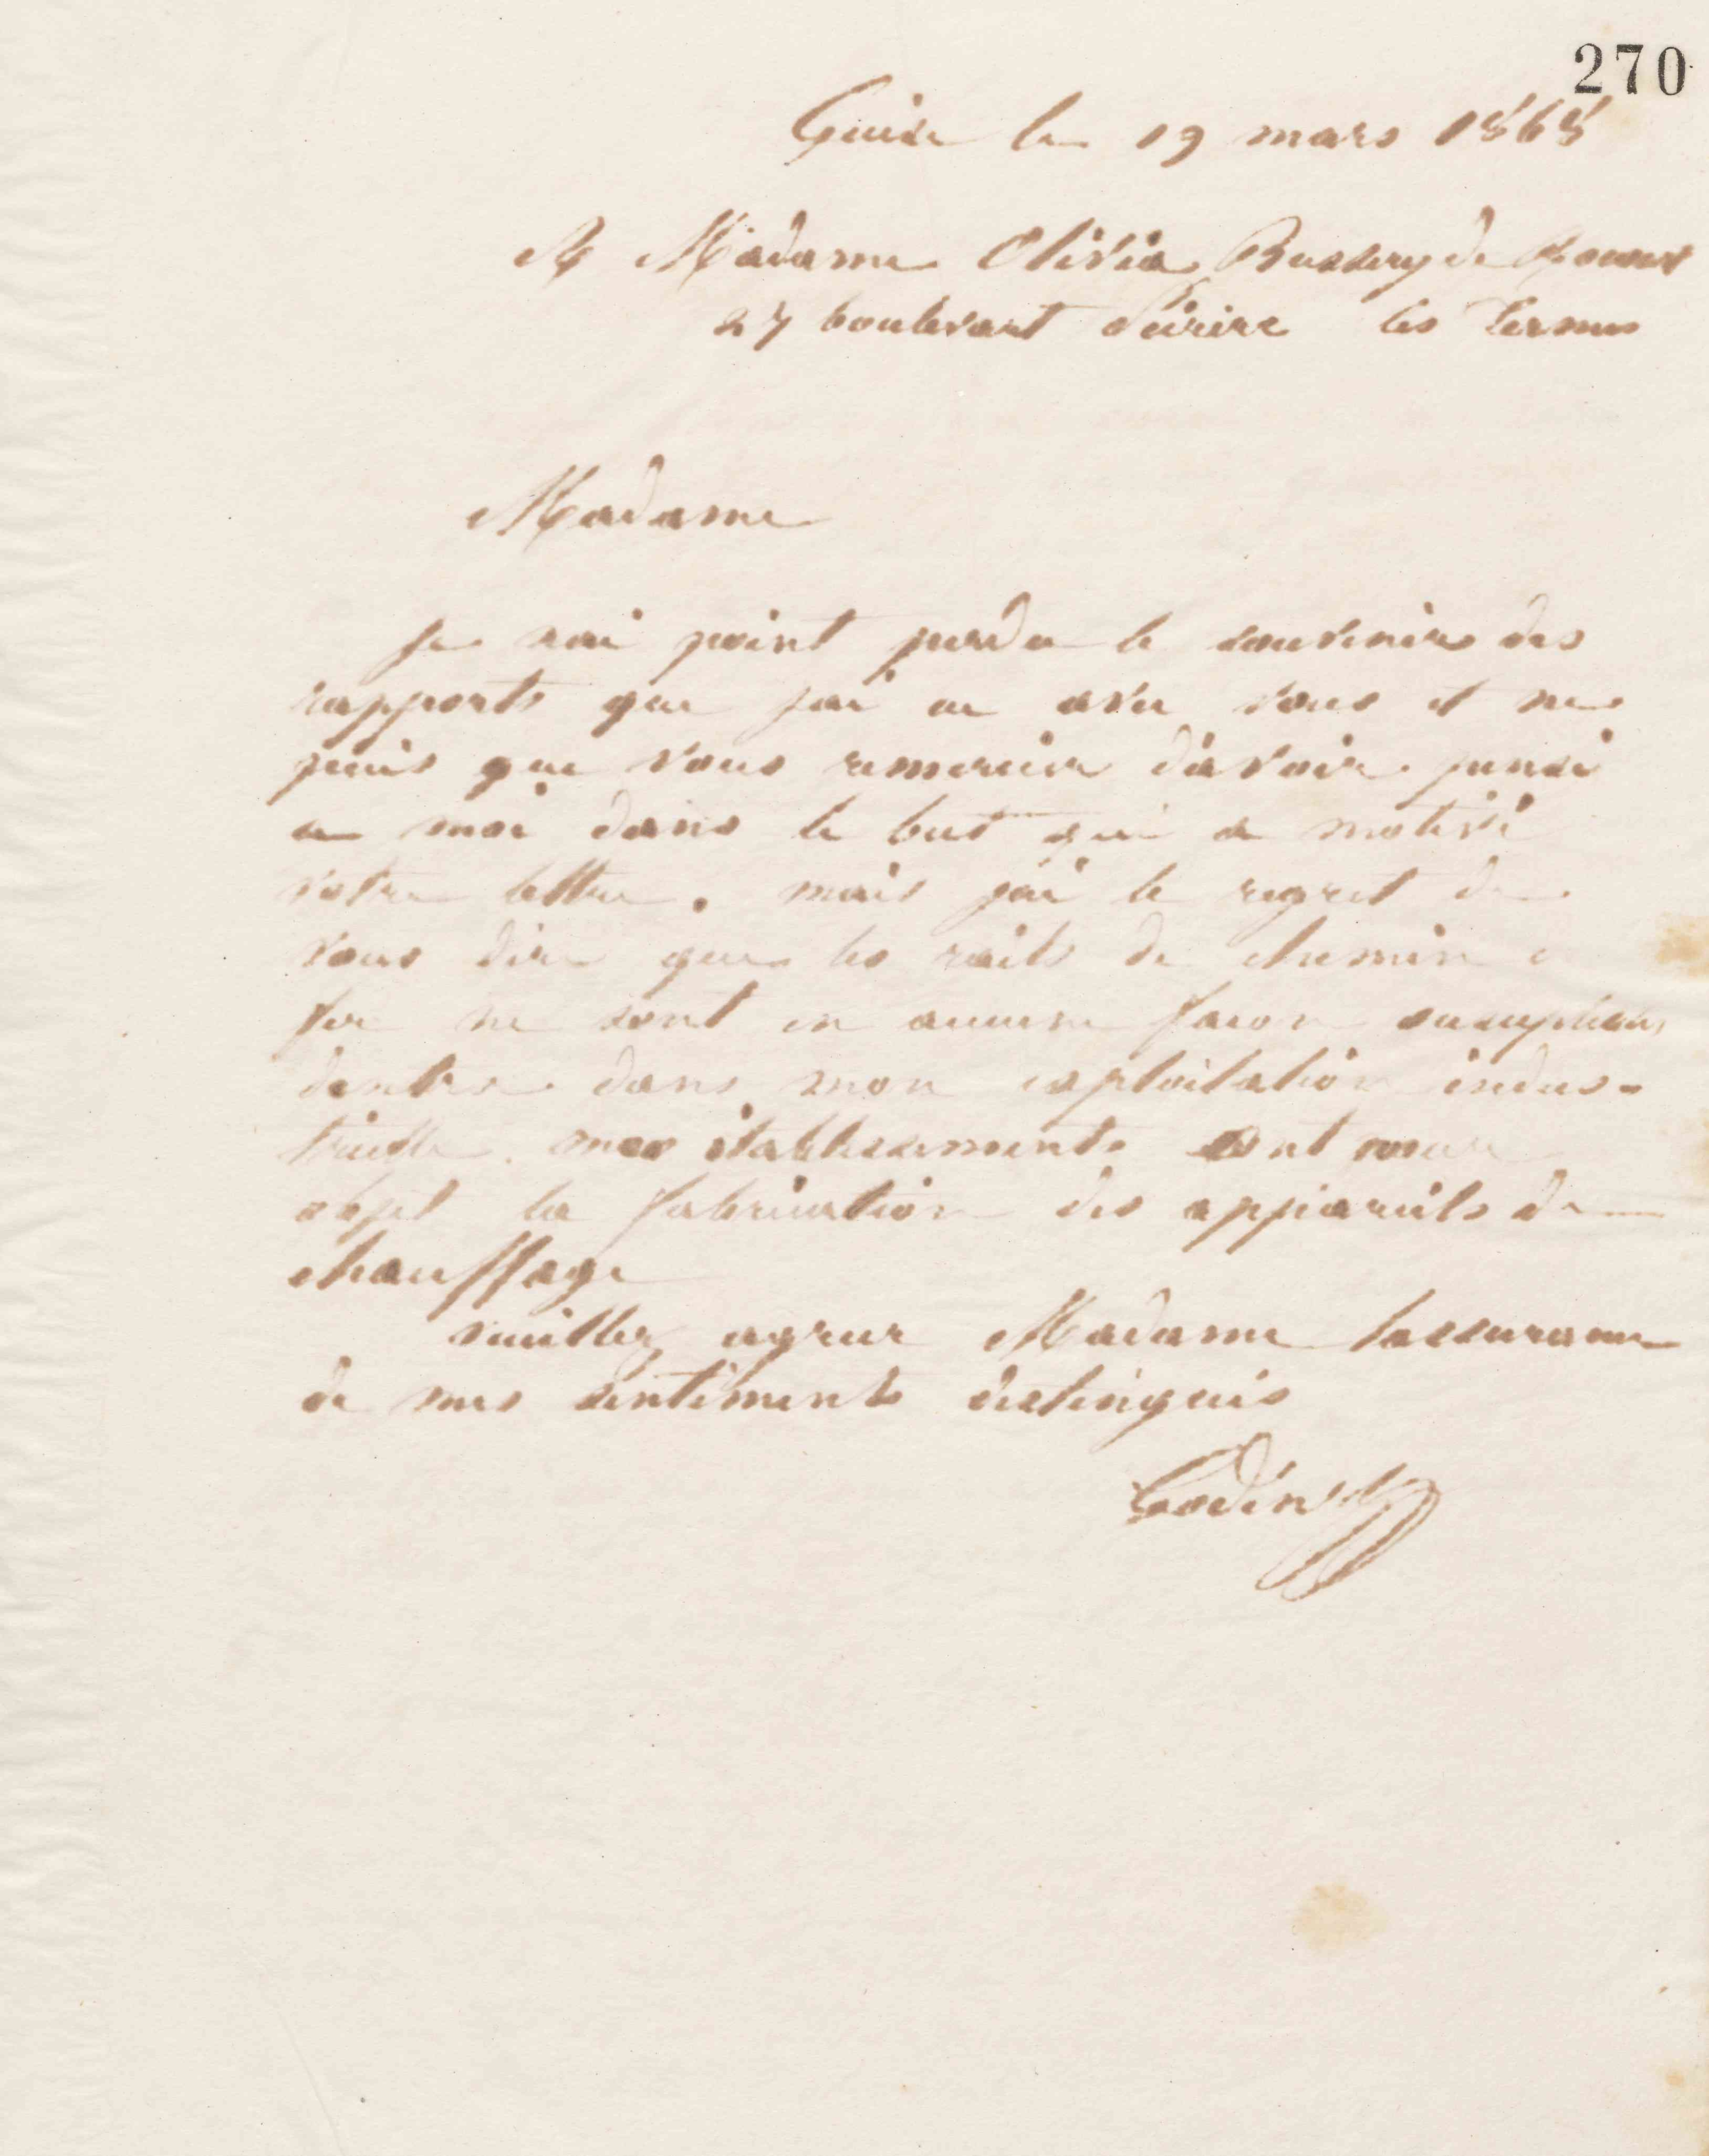 270
Guise le 19 mars 1868
A Madame Olivia de
27 boulevart Péreire les Ternes
Madame
Je nai point perdu le souvenir des
rapports que jai eu avec vous et ne
puis que vous remercier d'avoir pensé
a moi dans le but qui a motivé
votre lettre. mais j'ai le regret de
vous dire que les rails de chemin
fer ne sont en aucune facon
dentrer dans mon exploitation indus-
trielle. mes établissements ont pour
objet la fabrication des appareils de
chauffage
veuillez agreer Madame lassurance
de mes sentiments distingués
Godin